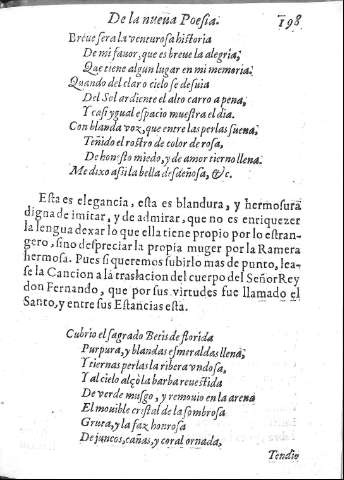 De la nueua Poesia. 198
Breue sera la venturosa historia
De mi fauor, que es breue la alegria,
Que tiene algun lugar en mi memoria.
Quando del claro cielo se desuia
Del Sol ardiente el alto carro a pena,
Y casi ygual espacio muestra el dia.
Con blanda voz, que entre las perlas suena,
Teñido el rostro de color de rosa,
De honesto miedo, y de amor tierno llena.
Me dixo assi la bella desdeñosa, &c.
Esta es elegancia, esta es blandura, y hermosura
digna de imitar, y de admirar, que no es enriquezer
la lengua dexar lo que ella tiene propio por lo estran-
gero, sino despreciar la propia muger por la Ramera
hermosa. Pues si queremos subirlo mas de punto, lea-
se la Cancion a la traslacion del cuerpo del Señor Rey
don Fernando, que por sus virtudes fue llamado el
Santo, y entre sus Estancias esta.
Cubrio el sagrado Betis de florida
Purpura, y blandas esmeraldas llena,
Y tiernas perlas la ribera vndosa,
Y al cielo alçò la barba reuestida
De verde musgo, y remouio en la arena
El mouible cristal de la sombrosa
Gruta, y la faz honrosa
De juncos, cañas, y coral ornada,
Tendio